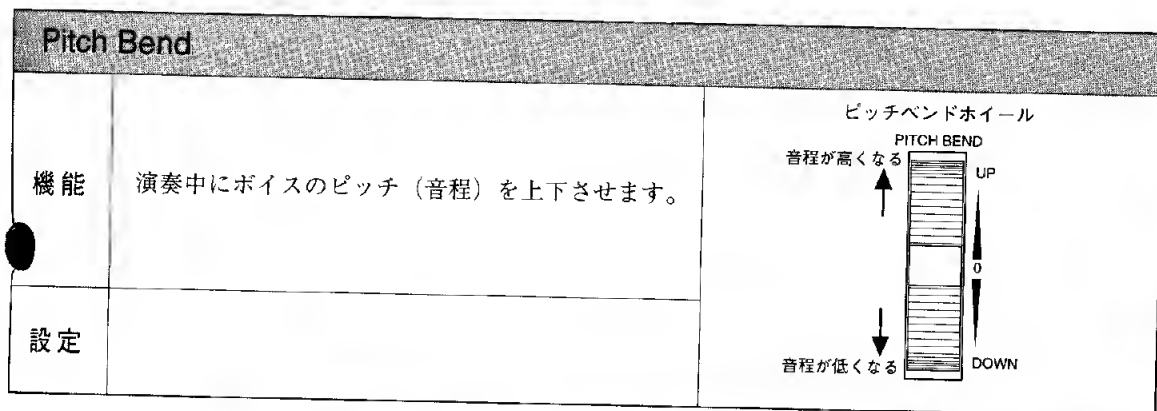 Pitch Bend
機能
演奏中にボイスのピッチ（音程）を上下させます。
設定
ピッチベンドホイール
PITCH BEND
音程が高くなる
UP
0
音程が低くなる
DOWN